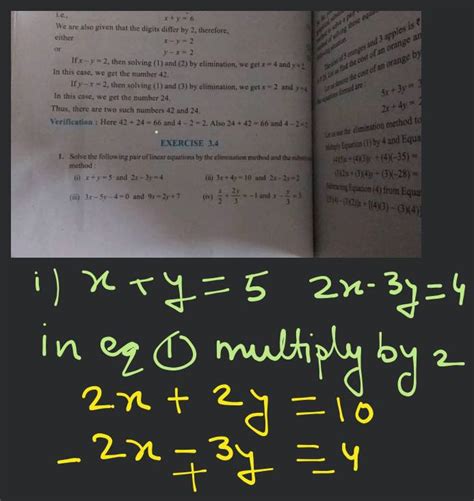 i.e., x + y = 6
We are also given that the digits differ by 2, therefore,
either x – y = 2
or y – x = 2
If x – y = 2, then solving (1) and (2) by elimination, we get x = 4 and y = 2
In this case, we get the number 42.
If y – x = 2, then solving (1) and (3) by elimination, we get x = 2 and y = 4
In this case, we get the number 24.
Thus, there are two such numbers 42 and 24.
Verification : Here 42 + 24 = 66 and 4 – 2 = 2. Also 24 + 42 = 66 and 4 – 2 = 2
EXERCISE 3.4
1. Solve the following pair of linear equations by the elimination method and the
method :
(i) x + y = 5 and 2x – 3y = 4 (ii) 3x + 4y = 10 and 2x – 2y = 2
(iii) 3x – 5y – 4 = 0 and 9x = 2y + 7 (iv) x/2 + 2y/3 = –1 and x – y/3 = 3
oranges and 3 apples is ₹
find the cost of an orange an
the cost of an orange by
equation formed are :
5x + 3y =
2x + 4y =
Let us use the elimination method to
Multiply Equation (1) by 4 and Equa
(4)(5)x + (4)(3)y + (4)(–35) =
(3)(2)x + (3)(4)y + (3)(–28) =
Subtracting Equation (4) from Equat
[(5)(4) – (3)(2)]x + [(4)(3) – (3)(4)]
i) x + y = 5 2x - 3y = 4
in eq ① multiply by 2
2x + 2y = 10
- 2x - 3y = 4
+ -